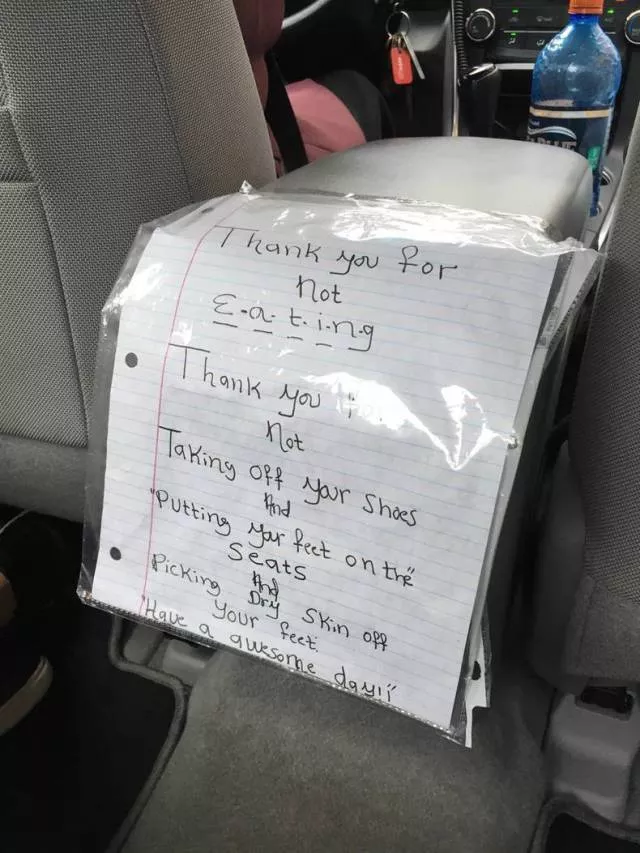 Thank you for
Not
E.a.t.i.n.g
Thank you
Not
Taking off your shoes
And
"Putting your feet on the"
Seats
And
Picking Dry Skin off
Your feet.
"Have a awesome day!!"